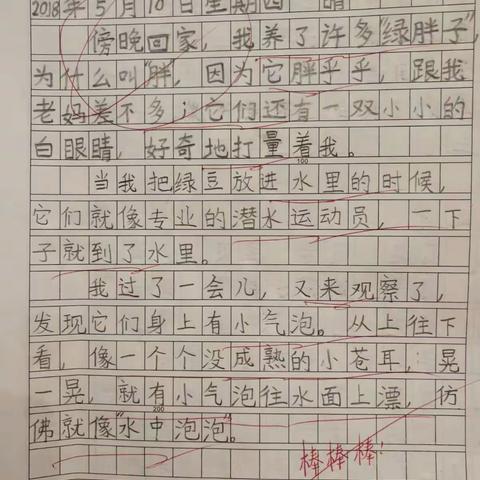 2018年5月10日星期四 晴
傍晚回家，我养了许多“绿胖子”，
为什么叫“胖”，因为它胖乎乎，跟我
老妈差不多；它们还有一双小小的
白眼睛，好奇地打量着我。
100
当我把绿豆放进水里的时候，
它们就像专业的潜水运动员，一下
子就到了水里。
我过了一会儿，又来观察了，
发现它们身上有小气泡。从上往下
看，像一个个没成熟的小苍耳，晃
一晃，就有小气泡往水面上漂，仿
200
佛就像“水中泡泡”。
棒棒棒！